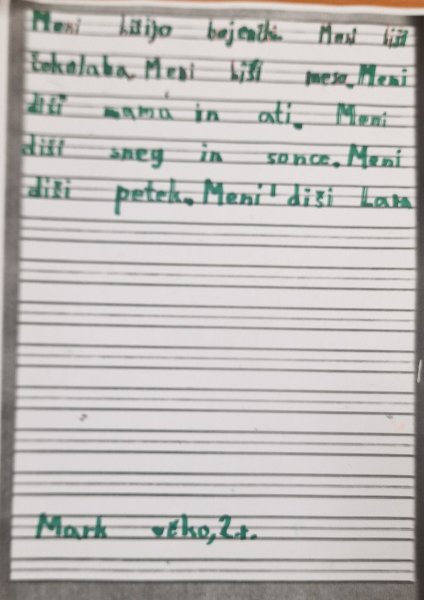 Meni dišijo bojončki. Meni diši
čokolada. Meni diši meso. Meni
diši mama in ati. Meni
diši sneg in sonce. Meni
diši petek. Meni diši Lan
Mark 2.r.